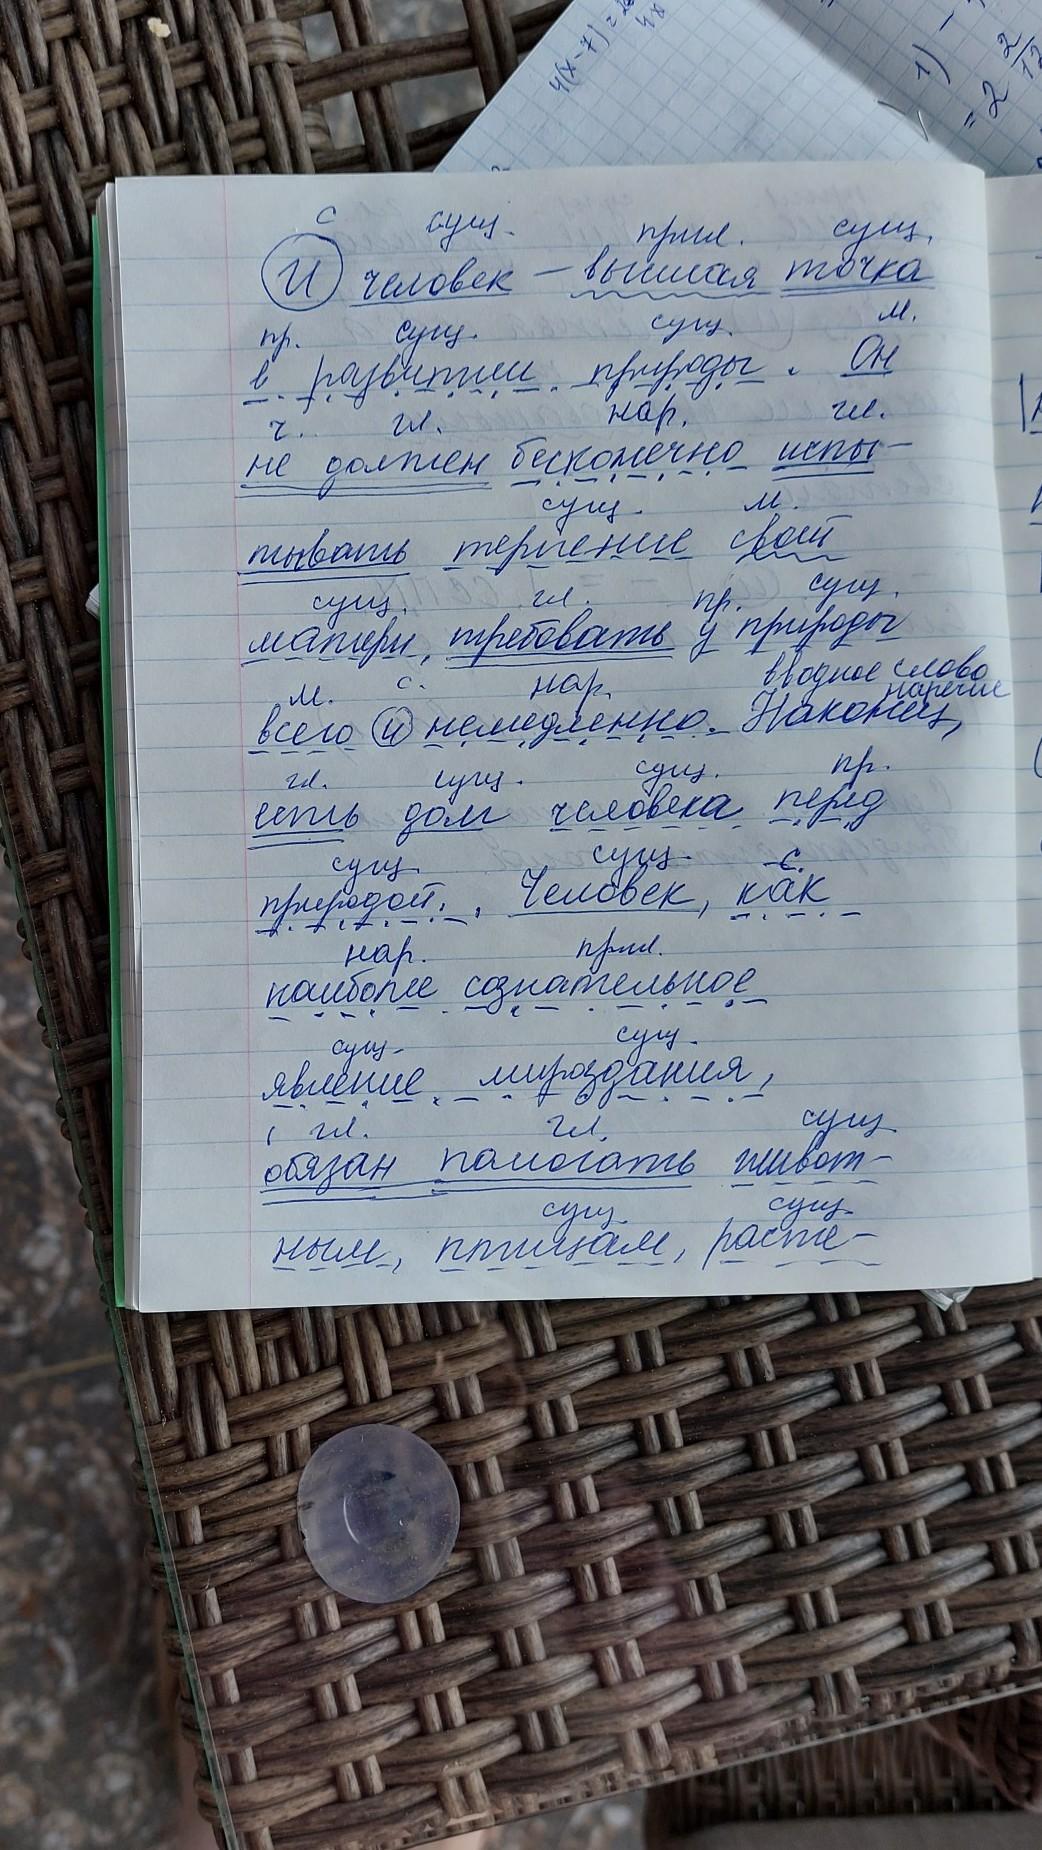 4(x-7)=
4x
1) -
= 2 2/12
с сущ. прил. сущ.
И человек - высшая точка
пр. сущ. сущ. м.
в развитии природы. Он
ч. гл. нар. гл.
не должен бесконечно испы-
сущ. м.
тывать терпение своей
сущ. гл. пр. сущ.
матери, требовать у природы
вводное слово
м. с. нар. наречие
всего и немедленно. Наконец,
гл. сущ. сущ. пр.
есть долг человека перед
сущ. сущ. с.
природой. Человек, как
нар. прил.
наиболее сознательное
сущ. сущ.
явление мироздания,
гл. гл. сущ.
обязан помогать живот-
сущ. сущ.
ным, птицам, расте-